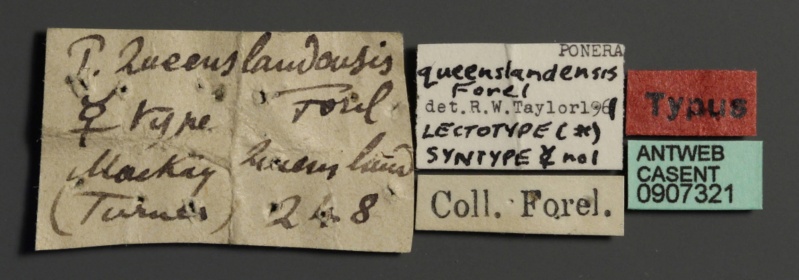 P. Queenslandensis
☿ type Forel
Mackay Queensland
(Turner) 248
PONERA
queenslandensis
Forel
det. R.W. Taylor 1961
LECTOTYPE (*)
SYNTYPE ☿ no 1
Coll. Forel.
Typus
ANTWEB
CASENT
0907321